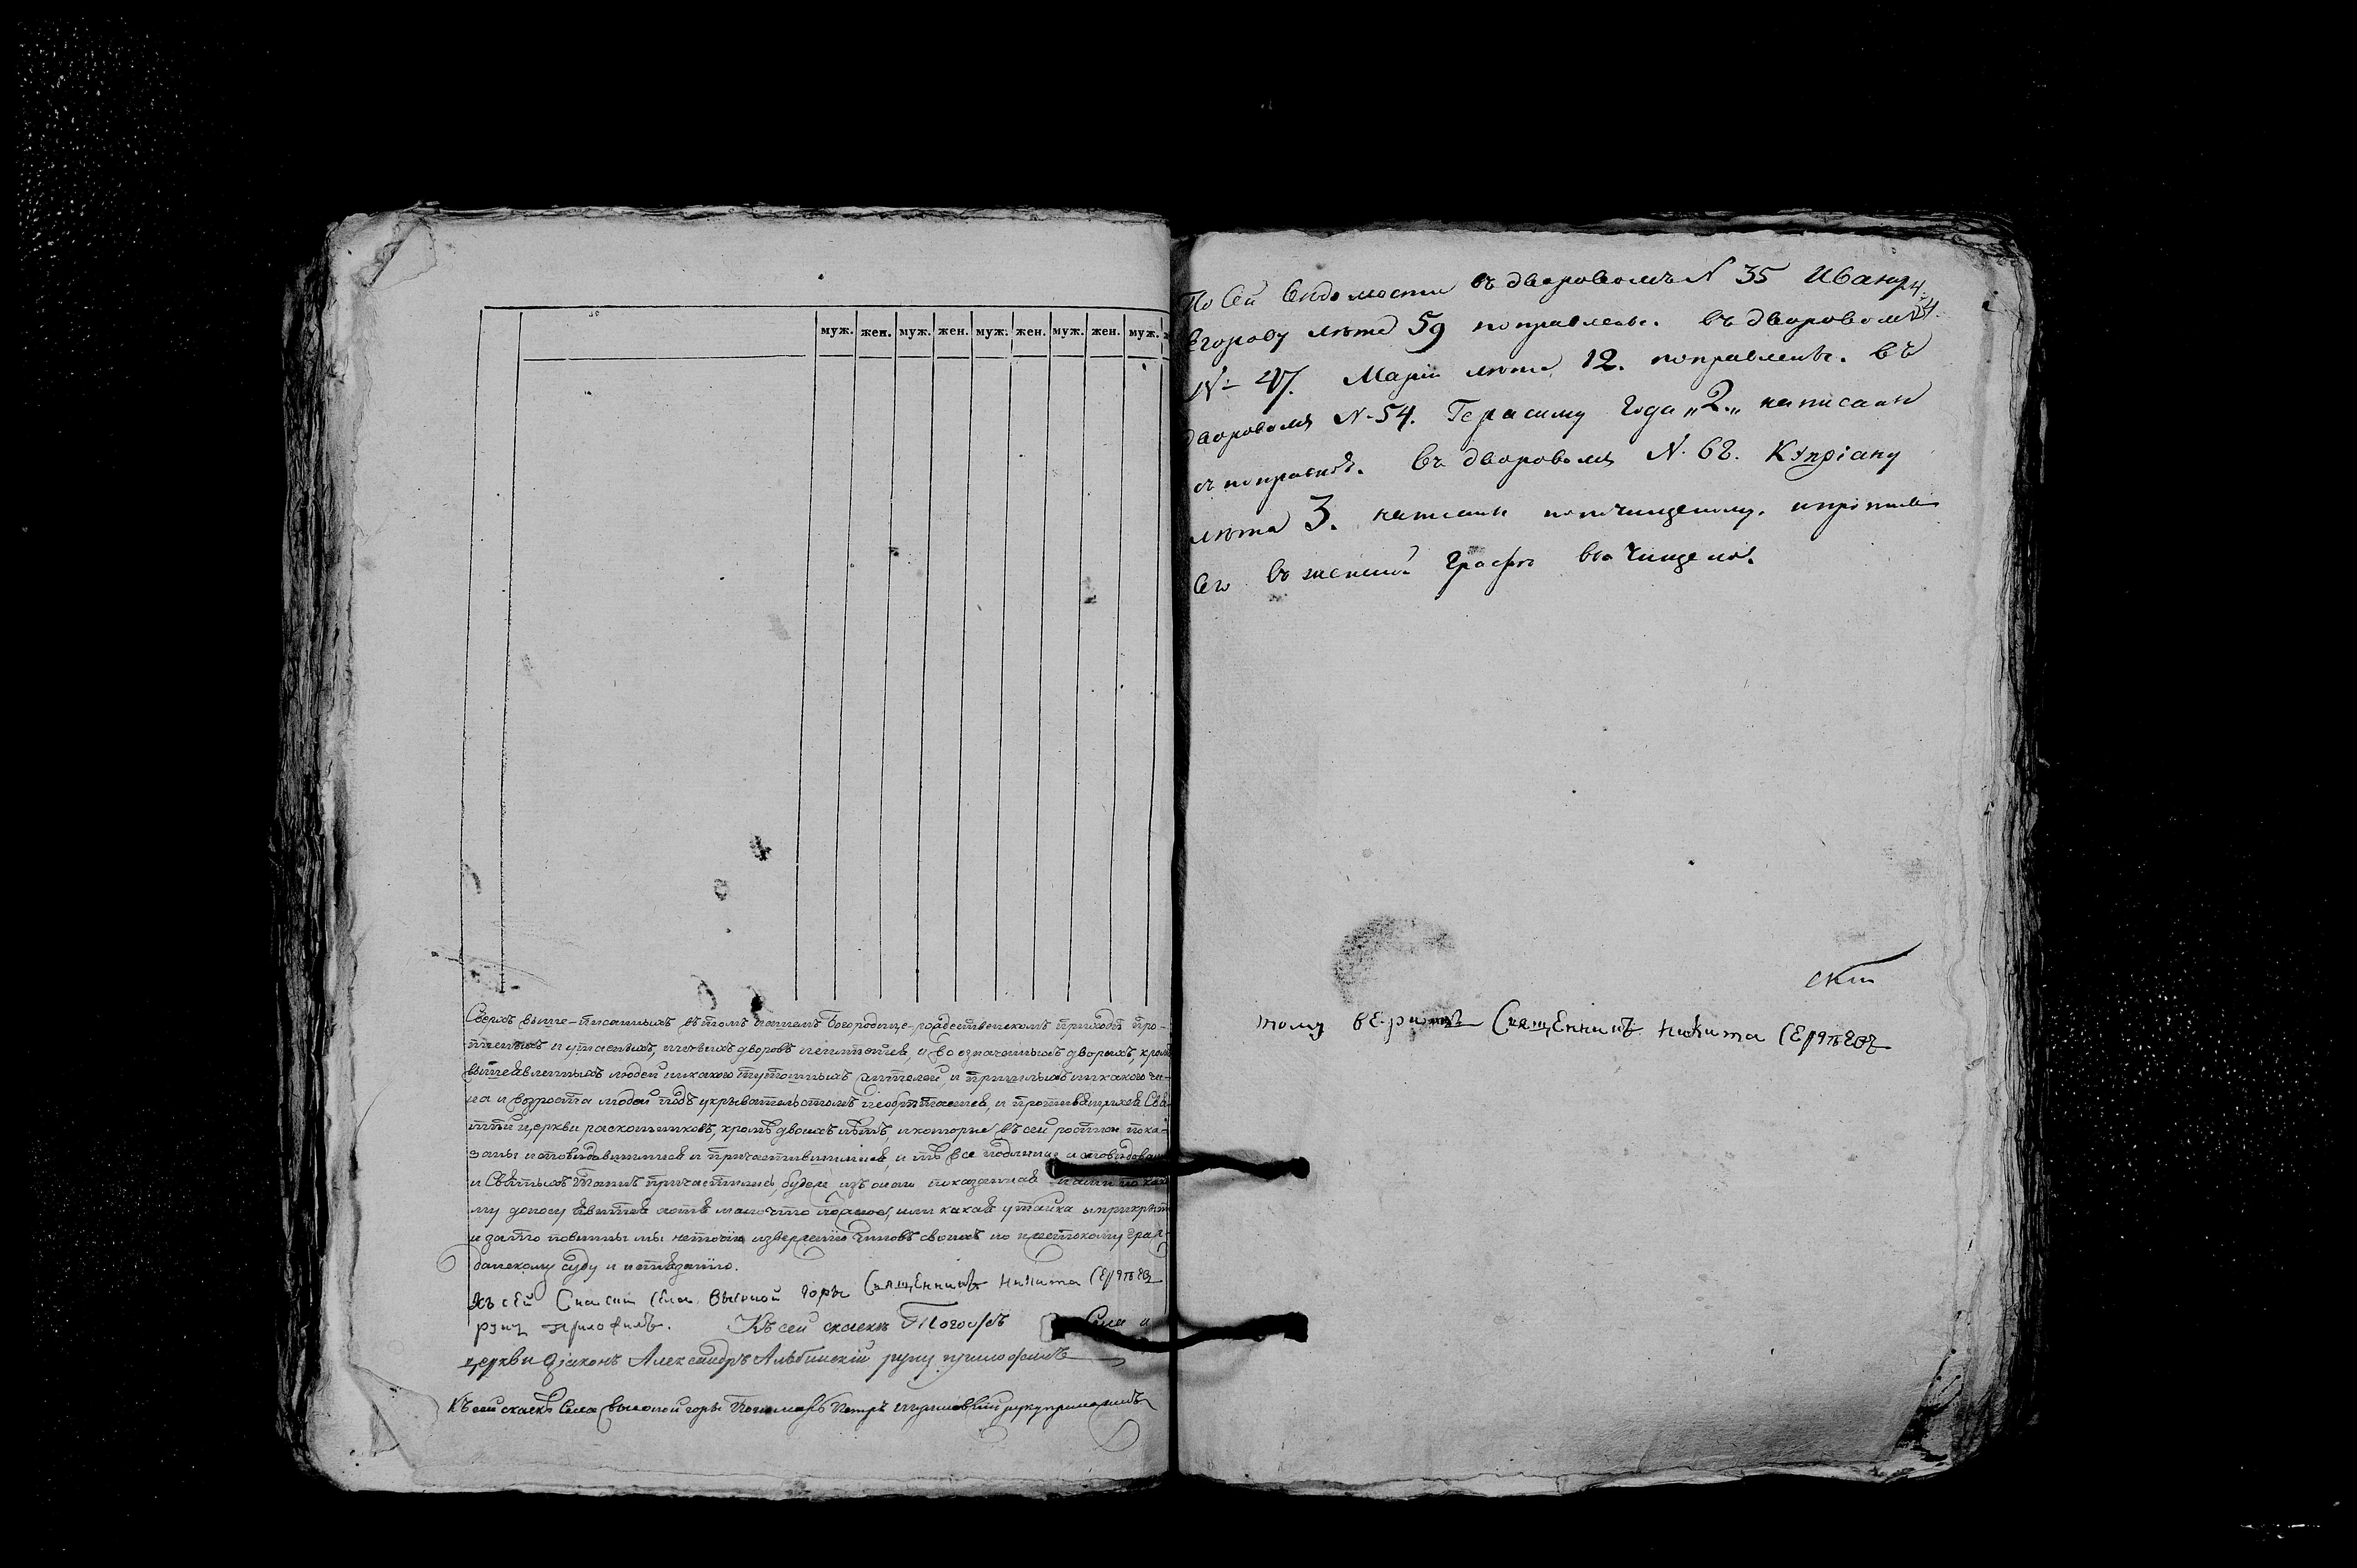 муж. жен. муж. жен. муж. жен. муж. жен. муж.
Сверхъ выше-писанныхъ въ томъ нашемъ Богородице-рождественскомъ приходѣ про-
и утаенныхъ, дворовъ и во означенныхъ дворѣхъ, кромѣ
вышеявленныхъ людей никакого жителей, и пришлыхъ никакого чи-
на и возраста людей подъ укрывательствомъ необрѣтается, и
церкви раскольниковъ, кромѣ и которые въ сей росписи пока-
заны исповѣдавшимися и причастившимися, и тѣ все подлинно исповѣдован
и Святыхъ Таинъ причастились, будеже изъ сего показания
му доносу явится хотя мало что ложное, или какая утайка и прикрыт
и за то повинны мы изверженїю чиновъ своихъ но и жестокому граж-
данскому суду и истязанїю.
Къ сей Скаски села Высокой горы Священникъ Никита Сергѣевъ
руку приложилъ. Къ сей скаскѣ Тогожъ Села и
церкви дїаконъ Александръ Альбинскїй руку приложилъ
Къ сей скаскѣ Села Высокой горы Пономарь Петръ руку приложилъ
По Сей вѣдомости въ дворовомъ N 35 Ивану
Егорову лѣта 59 поправлены. въ дворовомъ
N 47. Марїи лѣта 12. поправлены. въ
дворовомъ N 54. Герасиму года „2„ написаны
съ поправкой. Въ дворовомъ N. 68. Кѵпрїану
лѣта 3. написаны по чищеному. и противъ
его въ женской графѣ вычищено.
тому вѣримъ Священникъ Никита Сергѣевъ